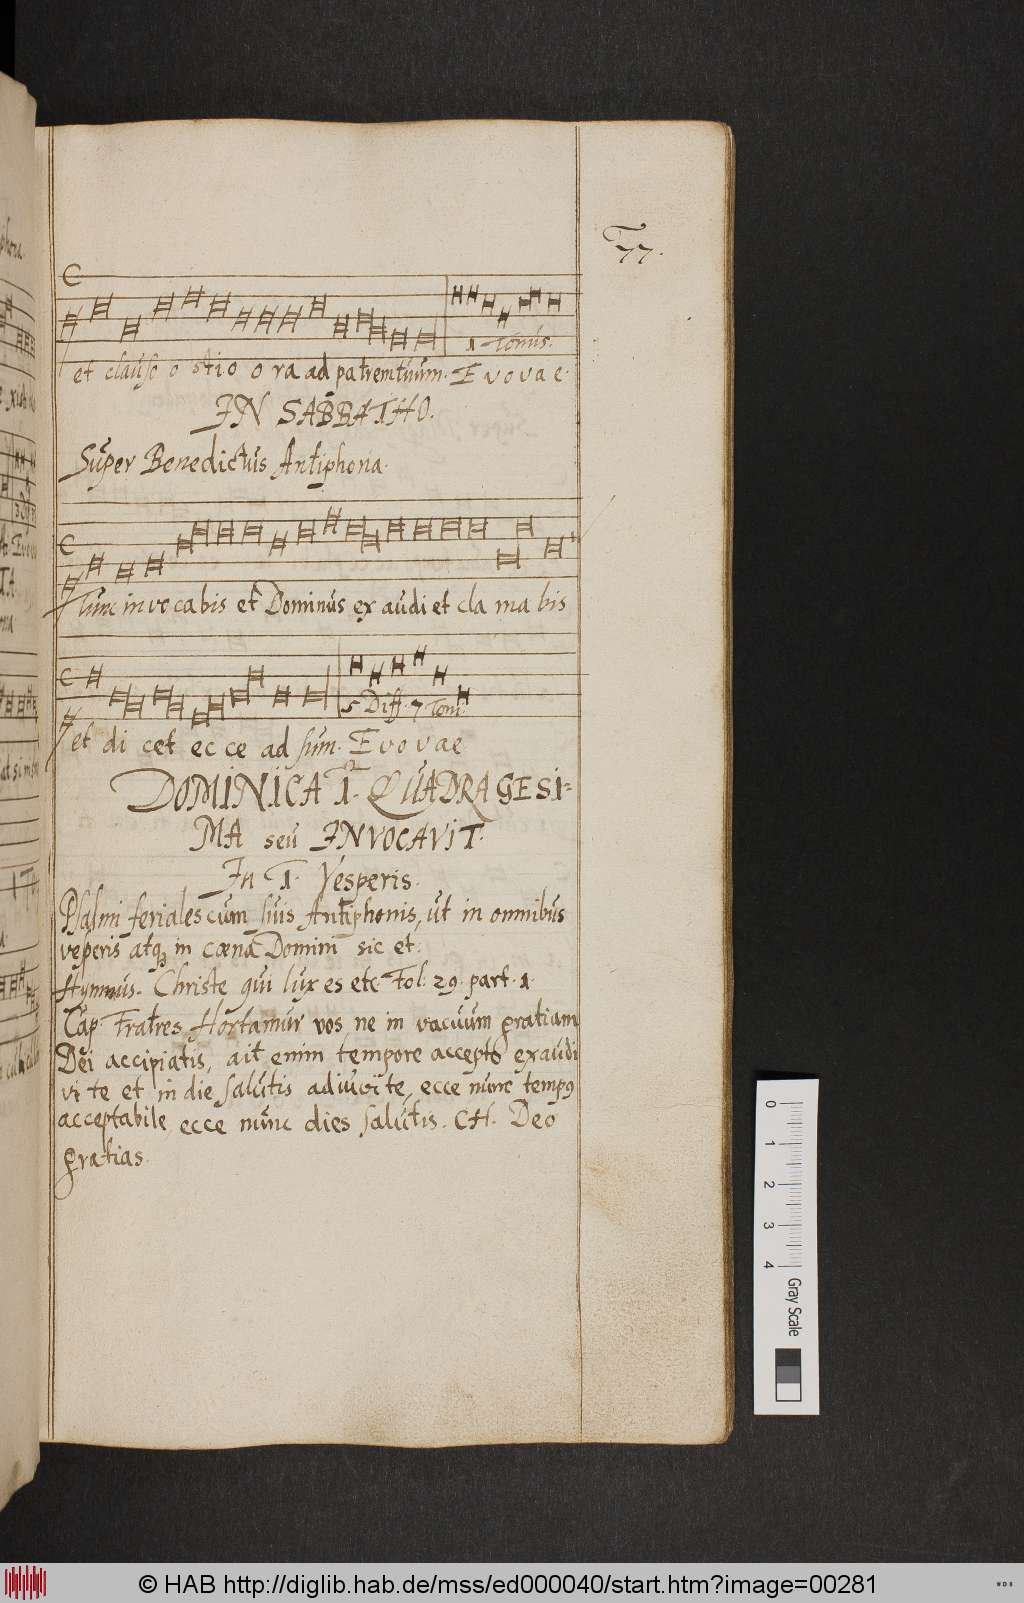 77.
1 Tonus.
et clauso o stio o ra ad patrem tuum. E v o v a e.
IN SABBATHO.
Super Benedictus Antiphona.
Tunc in vo ca bis et Dominus ex audi et cla ma bis
5 Diff. 7 Toni
et di cet ec ce ad sum. E v o v a e
DOMINICA I. QUADRAGESI-
MA seu INVOCAVIT.
In I. Vesperis.
Psalmi feriales cum suis Antiphonis, ut in omnibus
vesperis atq₃ in cœna Domini sic et.
Hymnus. Christe qui lux es etc. Fol. 29. part. 1.
Cap. Fratres Hortamur vos ne in vacuum gratiam
Dei accipiatis, ait enim tempore accepto exaudi
vi te et in die salutis adiuvi te, ecce nunc temp9
acceptabile ecce nunc dies salutis. CH. Deo
gratias.
0 1 2 3 4 Gray Scale
© HAB http://diglib.hab.de/mss/ed000040/start.htm?image=00281